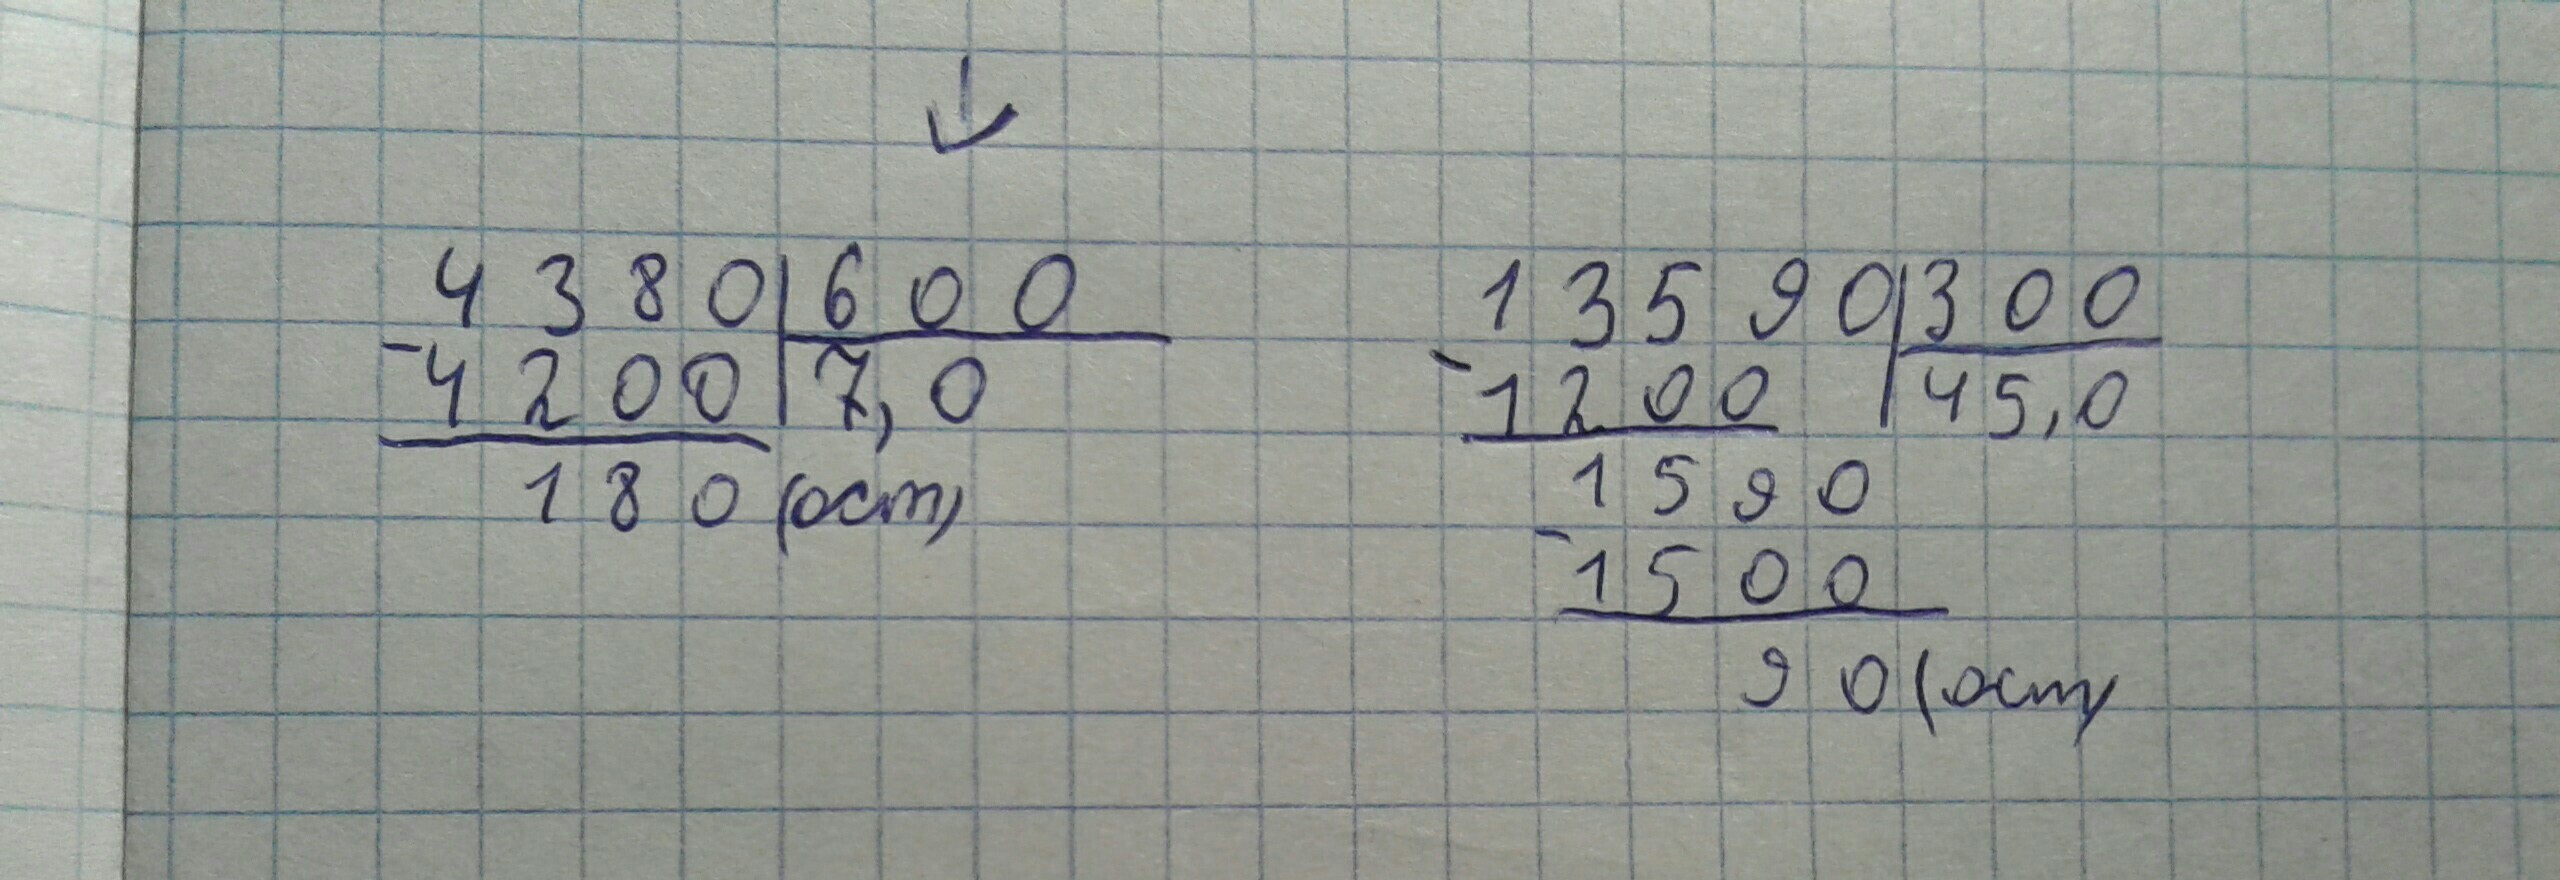 ↓
4380|600
-4200|7,0
180 (ост)
13590|300
-1200|45,0
1590
-1500
90 (ост)